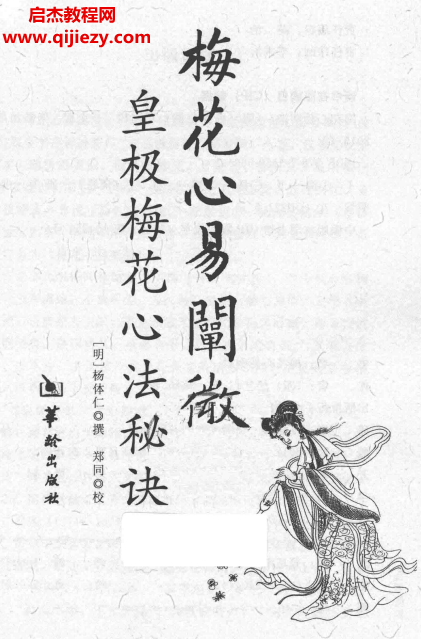 启杰教程网
www.qijiezy.com
梅花心易闡微
皇极梅花心法秘诀
［明］杨体仁◎撰 郑同◎校
華龄出版社